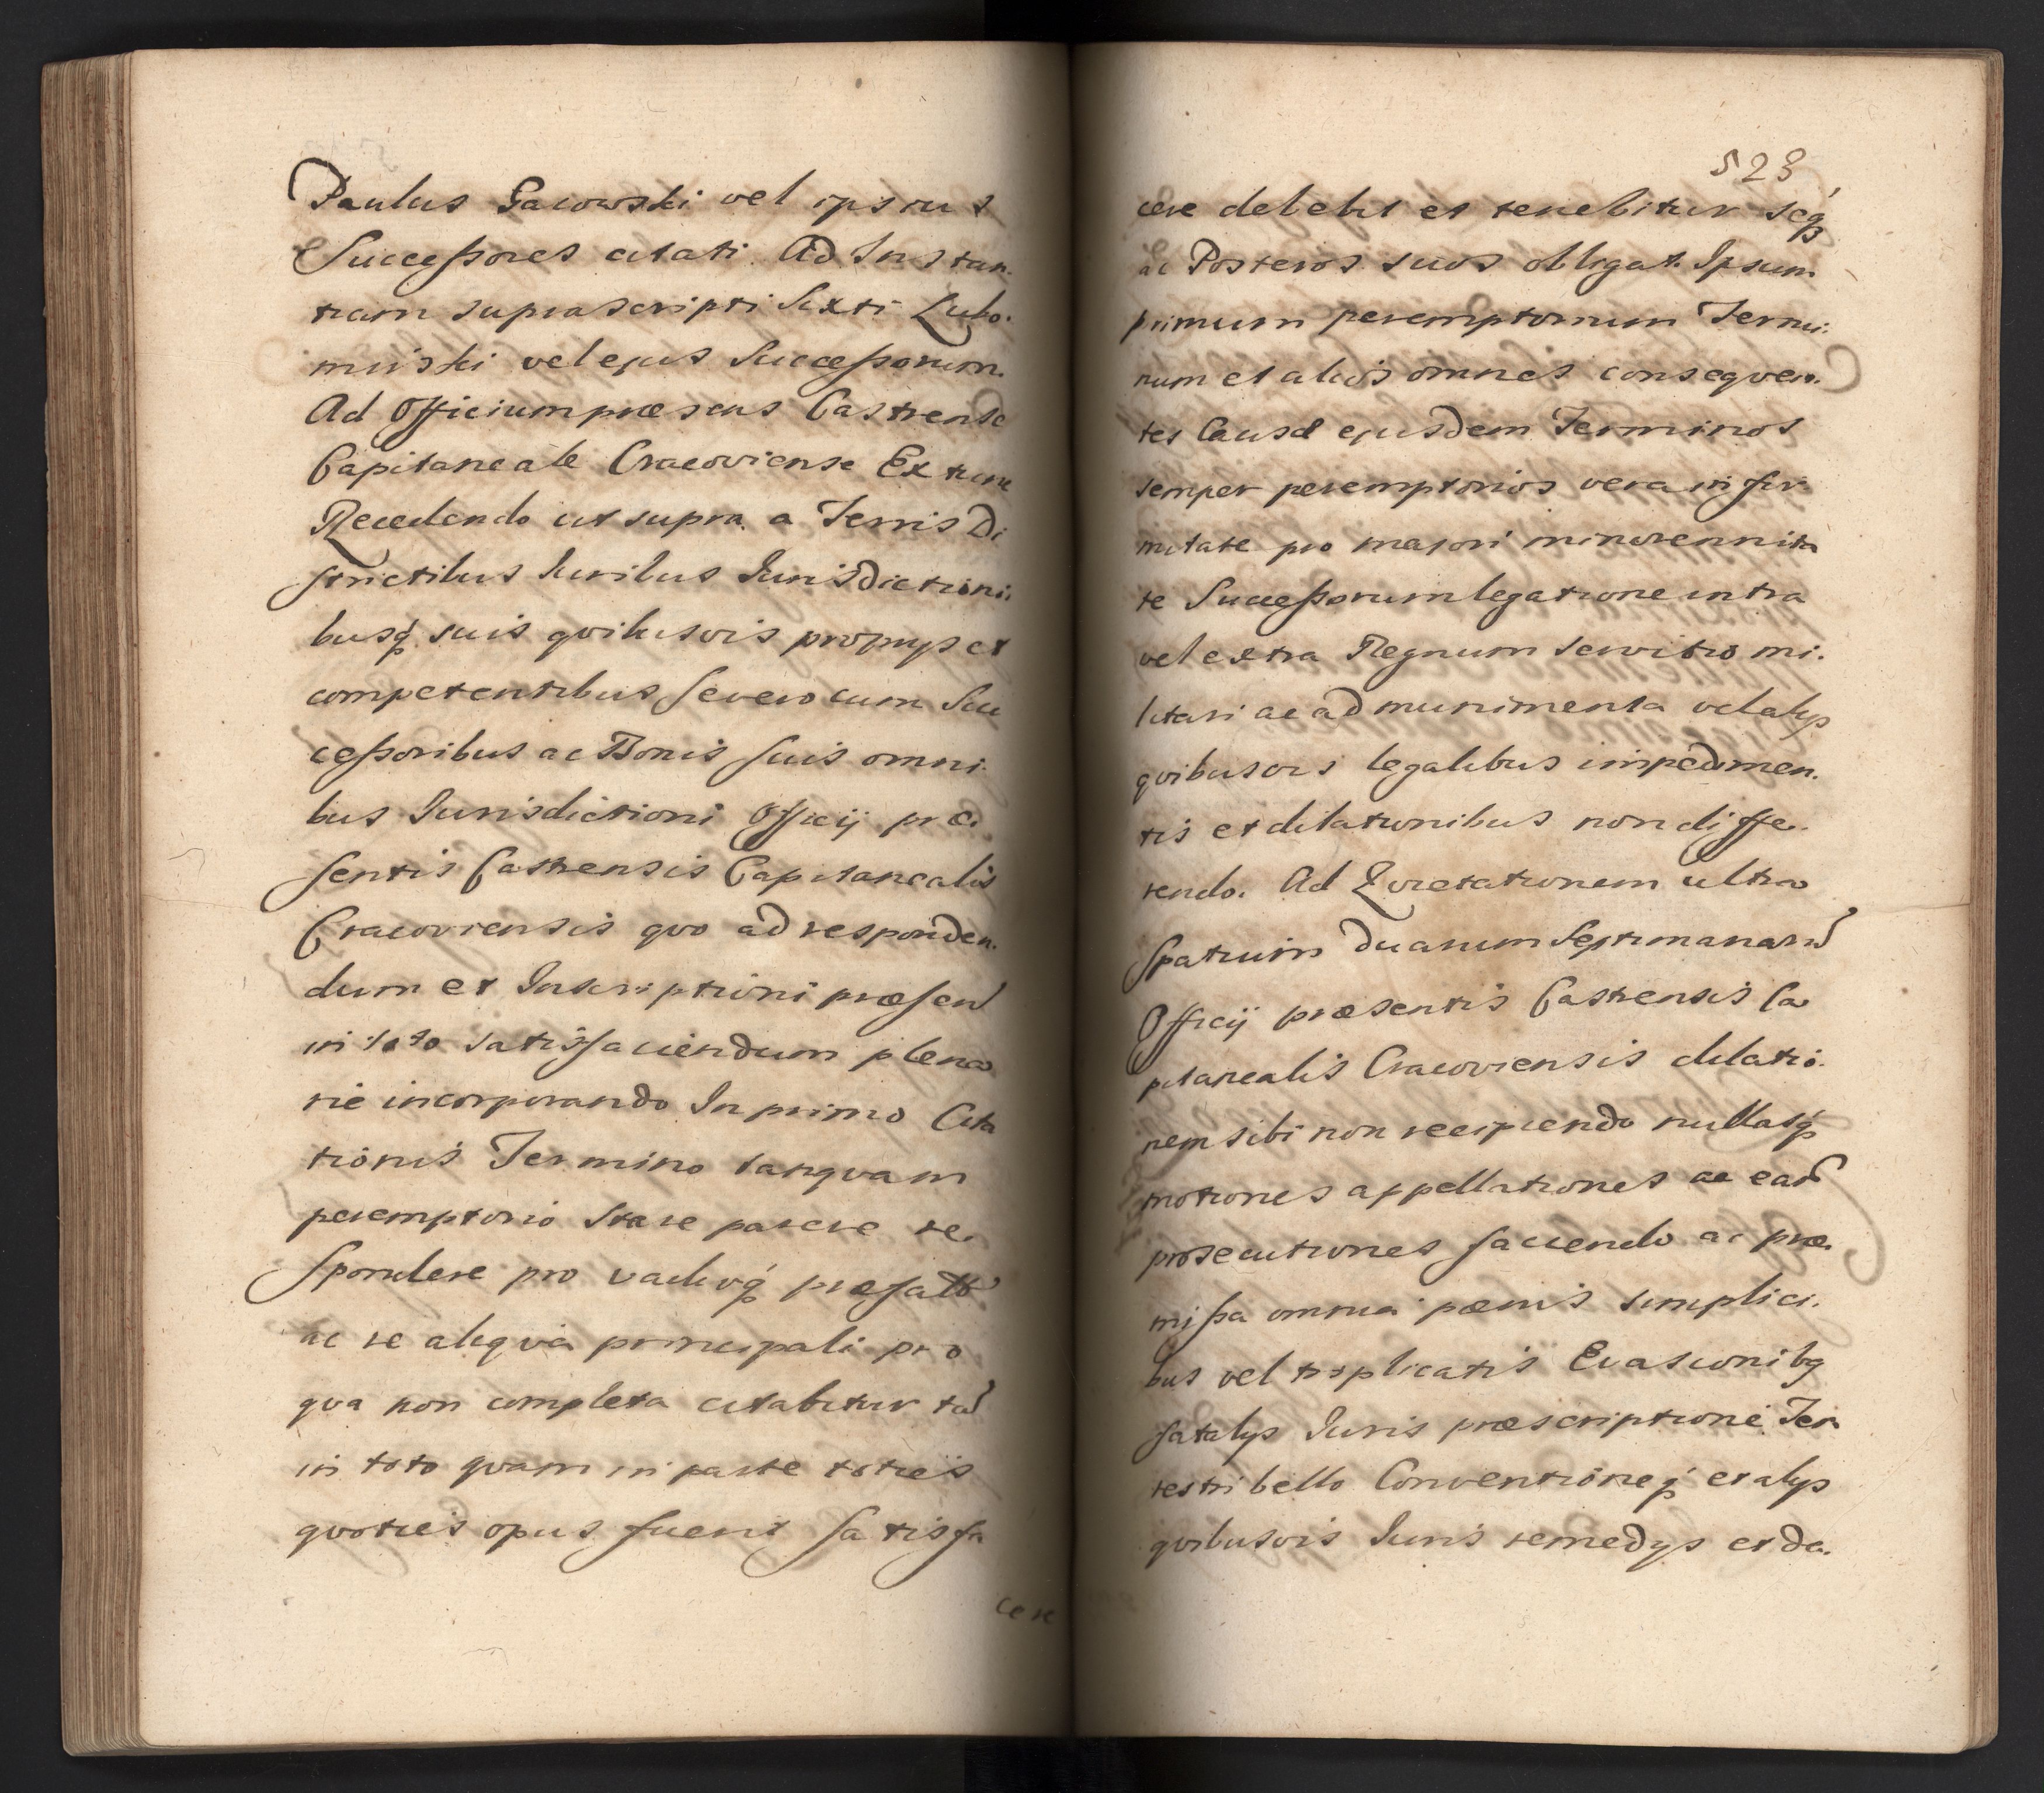 Paulus Gacowski vel ipsius
Successores citati Ad Instan-
tiam suprascripti Sixti Lubo-
mirski vel ejus Successorum
Ad Officium præsens Castrense
Capitaneale Cracoviense Ex tunc
Recedendo ut supra a Terris Di
strictibus Iuribus Iurisdictioni-
busq́ suis qvibusvis proprijs et
competentibus se vero cum Suc
cessoribus ac Bonis suis omni-
bus Iurisdictioni Officij præ-
sentis Castrensis Capitanealis
Cracoviensis qvo ad responden-
dum et Inscriptioni præsen
in toto satisfaciendum plena
rie incorporando In primo Cita
tionis Termino tanqvam
peremptorio Stare parere re-
spondere pro vadioq́ præfato
ac re aliqva principali pro
qva non completa citabitur ta
in toto qvam in parte toties
qvoties opus fuerit satisfa
cere
523
cere debebit et tenebitur seq́
ac Posteros suos obligat. Ipsum
primum peremptorium Termi-
num et alios omnes conseqven-
tes Causæ ejusdem Terminos
semper peremptorios vera in fir-
mitate pro majori minorennita
te Successorum legatione intra
vel extra Regnum servitio mi-
litari ac ad munimenta vel alijs
qvibusvis legalibus impedimen-
tis et dilationibus non diffe-
rendo. Ad Qvietationem ultra
Spatium duarum Septimanaru
Officij præsentis Castrensis Ca
pitanealis Cracoviensis dilatio-
nem sibi non recipiendo nullasq́
motiones appellationes ac ear
prosecutiones faciendo ac præ-
missa omnia pænis simplici-
bus vel triplicatis Evasionibq
fatalijs Iuris præscriptione Ter
restri bello Conventioneq́ et alijs
qvibusvis Iuris remedijs et da-